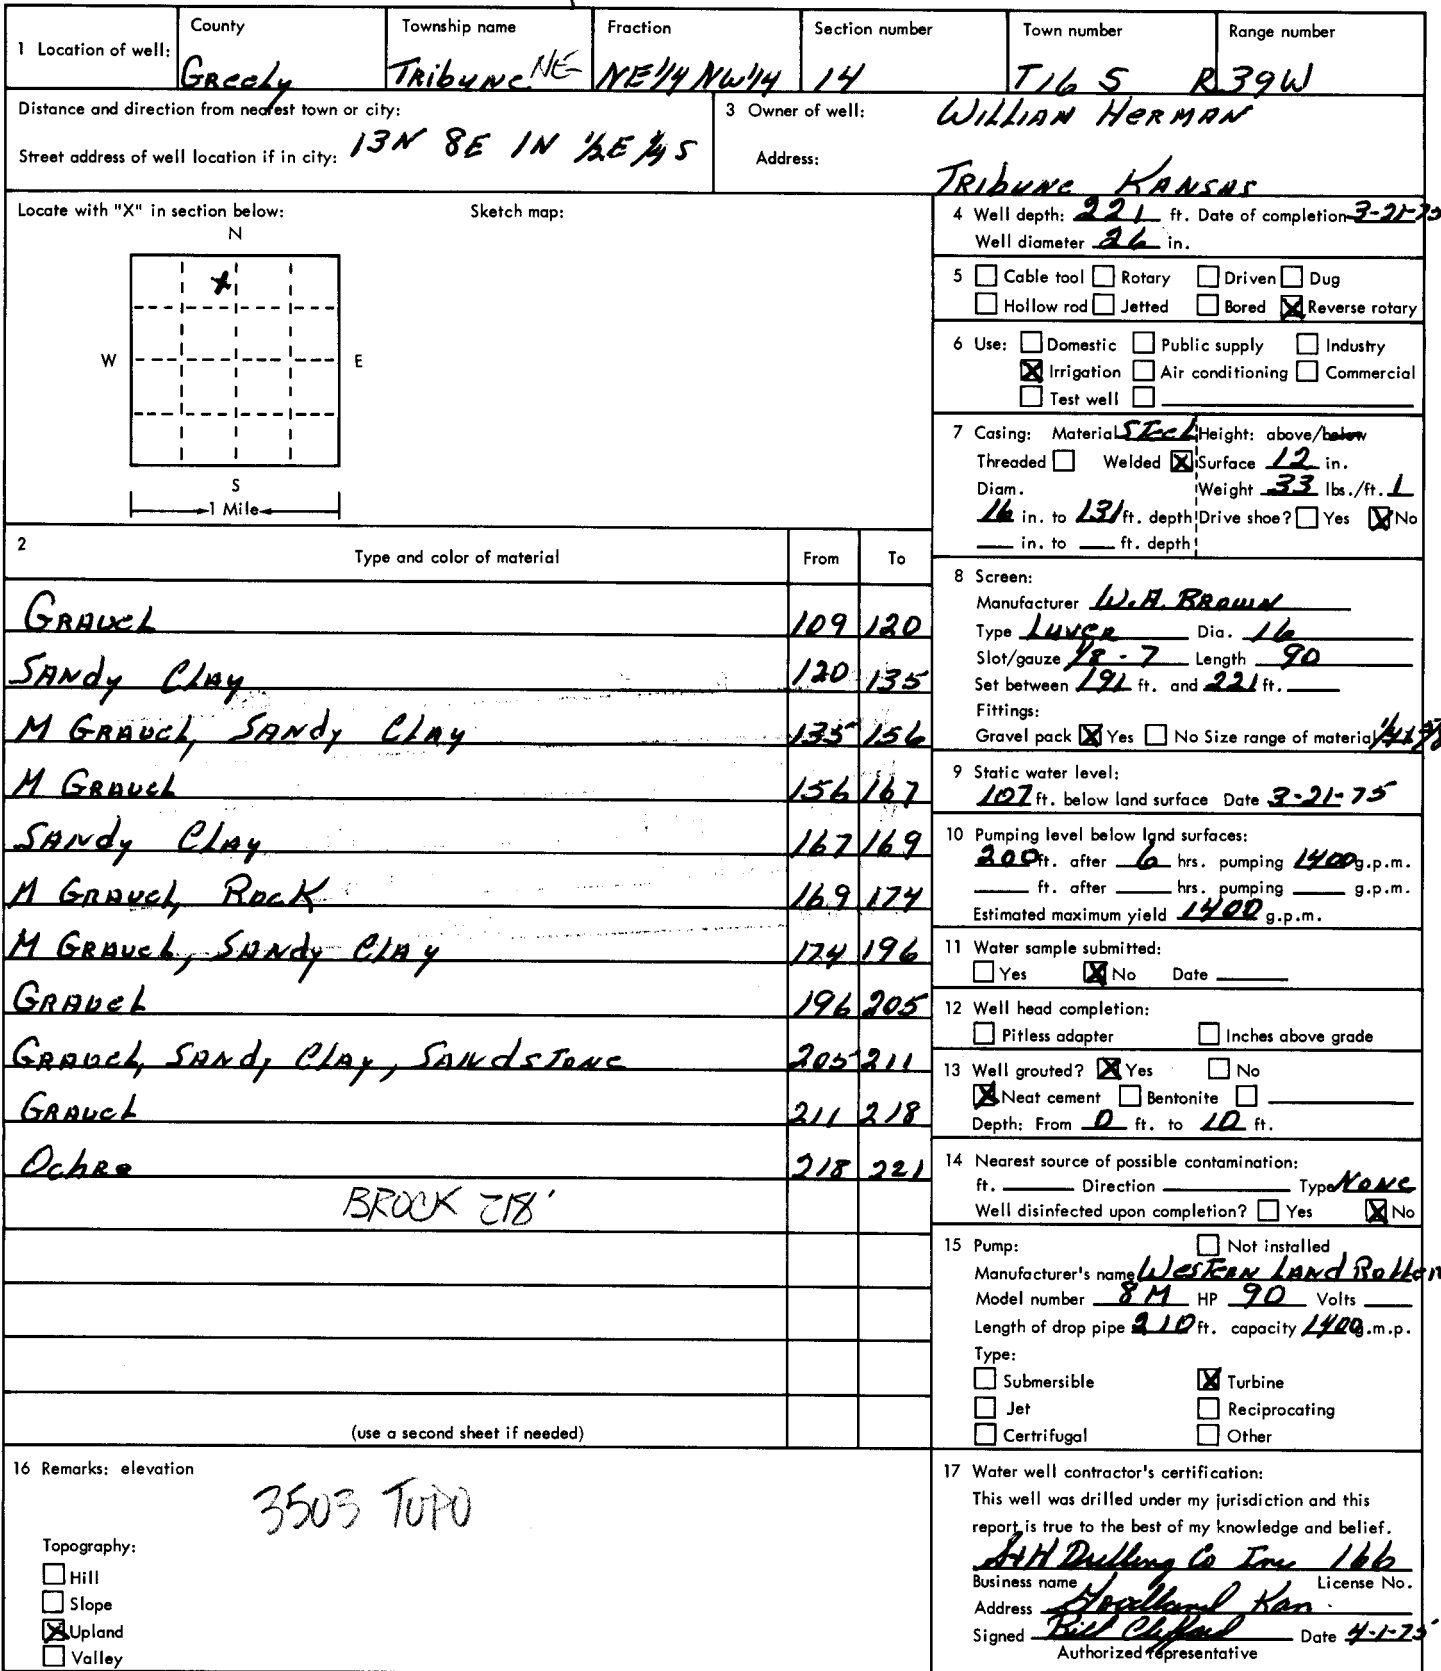 1 Location of well:
County
Greely
Township name
Tribune NE
Fraction
NE 1/4 NW 1/4
Section number
14
Town number
T16 S
Range number
R 39W
Distance and direction from nearest town or city:
Street address of well location if in city: 13N 8E 1N 1/2E 1/4 S
3 Owner of well: WILLIAN HERMAN
Address:
TRIbUNE KANSAS
Locate with "X" in section below:
Sketch map:
N
X
W
E
S
1 Mile
2
Type and color of material From To
GRAVEL 109 120
SANdy CLAY 120 135
M GRAVEL, SANdy CLAY 135 156
M GRAVEL 156 167
SANdy CLAY 167 169
M GRAVEL, ROCK 169 174
M GRAVEL, SANdy CLAY 174 196
GRAVEL 196 205
GRAVEL, SANdy CLAY, SANdSTONE 205 211
GRAVEL 211 218
OchRe 218 221
BROCK 218'
(use a second sheet if needed)
16 Remarks: elevation
3503 TOPO
Topography:
Hill
Slope
X Upland
Valley
4 Well depth: 221 ft. Date of completion 3-21-75
Well diameter 26 in.
5 Cable tool Rotary Driven Dug
Hollow rod Jetted Bored X Reverse rotary
6 Use: Domestic Public supply Industry
X Irrigation Air conditioning Commercial
Test well
7 Casing: Material STEEL Height: above/below
Threaded Welded X Surface 12 in.
Diam. Weight 33 lbs./ft. 1
16 in. to 131 ft. depth Drive shoe? Yes X No
in. to ft. depth
8 Screen:
Manufacturer W.A. BROWN
Type LUVER Dia. 16
Slot/gauze 1/8 - 7 Length 90
Set between 191 ft. and 221 ft.
Fittings:
Gravel pack X Yes No Size range of material
9 Static water level:
107 ft. below land surface Date 3-21-75
10 Pumping level below land surfaces:
200 ft. after 6 hrs. pumping 1400 g.p.m.
ft. after hrs. pumping g.p.m.
Estimated maximum yield 1400 g.p.m.
11 Water sample submitted:
Yes X No Date
12 Well head completion:
Pitless adapter Inches above grade
13 Well grouted? X Yes No
X Neat cement Bentonite
Depth: From 0 ft. to 10 ft.
14 Nearest source of possible contamination:
ft. Direction Type NONE
Well disinfected upon completion? Yes X No
15 Pump: Not installed
Manufacturer's name WESTERN LANd RoLLER
Model number 8 M HP 90 Volts
Length of drop pipe 210 ft. capacity 1400 g.m.p.
Type:
Submersible X Turbine
Jet Reciprocating
Certrifugal Other
17 Water well contractor's certification:
This well was drilled under my jurisdiction and this
report is true to the best of my knowledge and belief.
S+H Drilling Co Inc 166
Business name License No.
Address Goodland Kan.
Signed Bill Clifford Date 4-1-75
Authorized representative